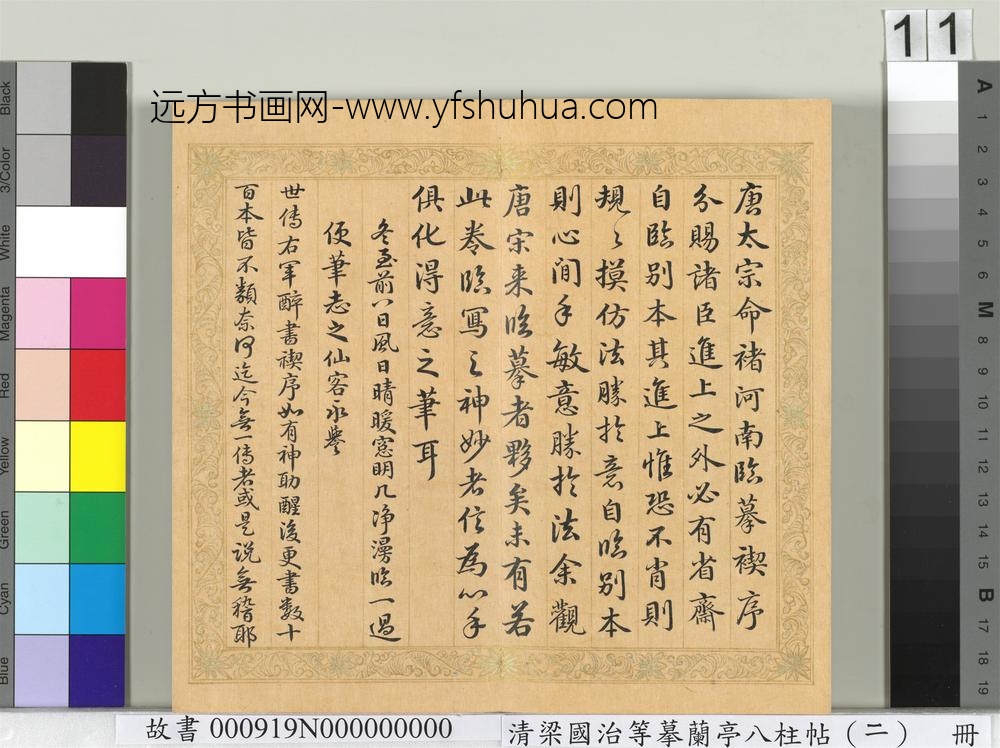 11
远方书画网-www.yfshuhua.com
唐太宗命褚河南臨摹禊序
分賜諸臣進上之外必有省齋
自臨別本其進上惟恐不肖則
規〻摸仿法勝於意自臨別本
則心閒手敏意勝於法余觀
唐宋来臨摹者夥矣未有若
此卷臨寫之神妙者信為心手
俱化得意之筆耳
冬至前八日風日晴暖窓明几净漫臨一過
便筆志之仙客永譽
世傳右軍醉書禊序如有神助醒後更書数十
百本皆不類奈何迄今無一傳者或是説無稽耶
Black
3/Color
White
Magenta
Red
Yellow
Green
Cyan
Blue
A
1
2
3
4
5
6
M
8
9
10
11
12
13
14
15
B
17
18
19
故書 000919N000000000
清梁國治等摹蘭亭八柱帖（二） 冊